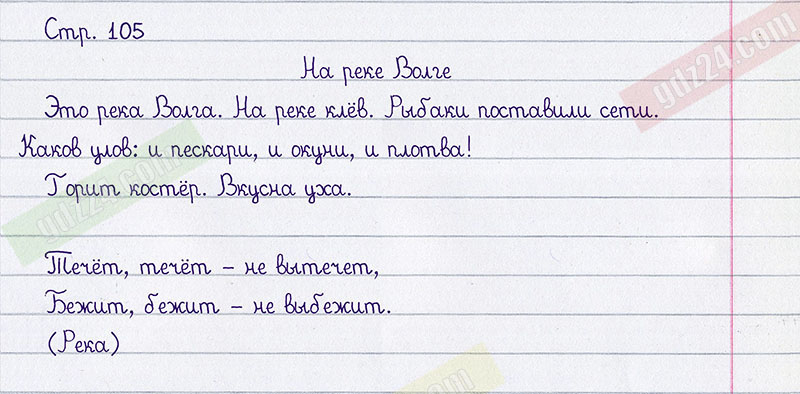 Стр. 105
На реке Волге
Это река Волга. На реке клёв. Рыбаки поставили сети.
Каков улов: и пескари, и окуни, и плотва!
Горит костёр. Вкусна уха.
Течёт, течёт – не вытечет,
Бежит, бежит – не выбежит.
(Река)
gdz24.com
gdz24.com